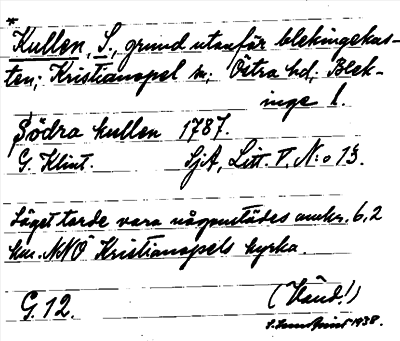 *
Kullen, S., grund utanför blekingekus-
ten; Kristianopel sn, Östra hd, Blek-
inge l.
Södra kullen 1787.
G. Klint. SjA, Litt. V, N:o 13.
Läget torde vara någonstädes omkr. 6,2
km. NNO Kristianopels kyrka.
G. 12. (Vänd!)
1938.